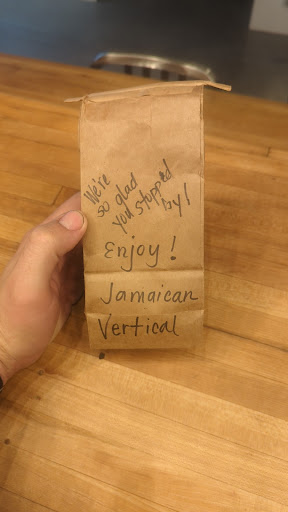 We're
so glad
you stopped
by!
Enjoy!
Jamaican
Vertical